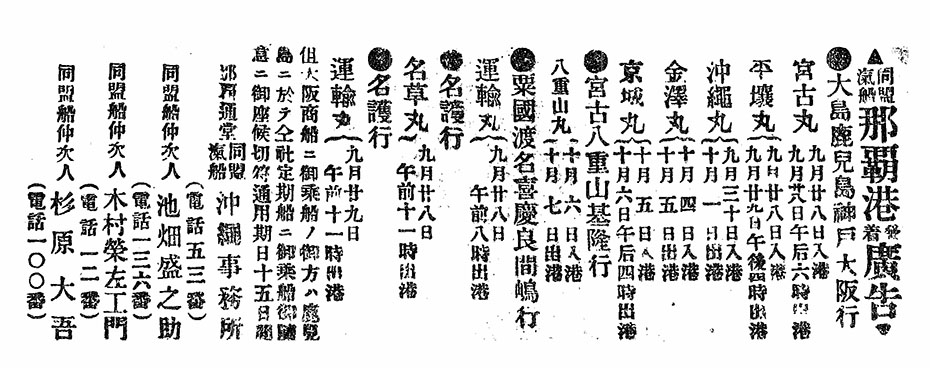 ▲同盟汽船那覇港發着廣告▼
●大島鹿兒島神戸大阪行
宮古丸 九月廿八日入港
九月廿八日午后六時出港
平壤丸 九月廿八日入港
九月廿九日午後四時出港
沖繩丸 九月三十日入港
十月一日出港
金澤丸 十月四日入港
十月五日出港
京城丸 十月五日入港
十月六日午后四時出港
●宮古八重山基隆行
八重山丸 十月六日入港
十月七日出港
●粟國渡名喜慶良間嶋行
運輸丸 九月廿八日
午前八時出港
●名護行
名草丸 九月廿八日
午前十一時出港
●名護行
運輸丸 九月廿九日
午前十一時出港
但大阪商船ニ御乘船ノ御方ハ鹿兒
島ニ於テ仝社定期船ニ御乘船御隨
意ニ御座候切符通用期日十五日間
那覇通堂 同盟汽船 沖繩事務所
同盟船仲次人 池畑盛之助
(電話五三番)
同盟船仲次人 木村榮左工門
(電話一三六番)
同盟船仲次人 杉原大吾
(電話一二番)
(電話一〇〇番)